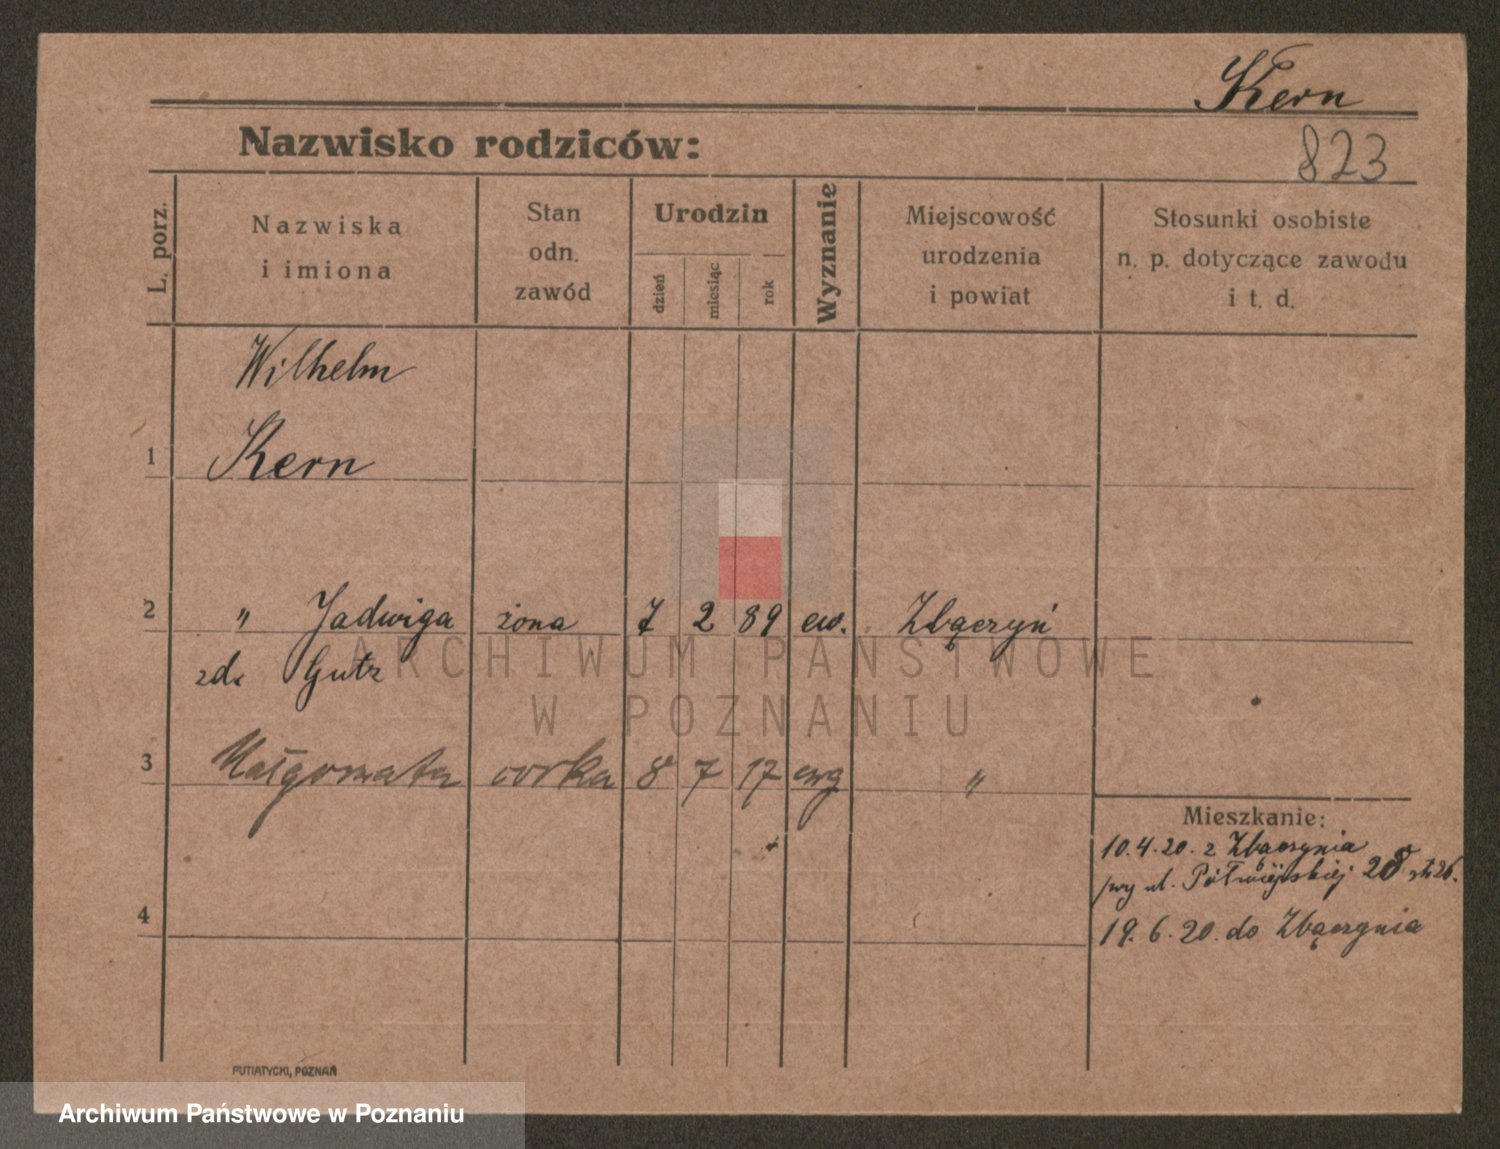 Kern
Nazwisko rodziców:
823
L. porz.
Nazwiska
i imiona
Stan
odn.
zawód
Urodzin
dzień
miesiąc
rok
Wyznanie
Miejscowość
urodzenia
i powiat
Stosunki osobiste
n. p. dotyczące zawodu
i t. d.
Wilhelm
1 Kern
2 " Jadwiga żona 7 2 89 ew. Zbączyń
zd. Gutz
3 Małgorzata corka 8 7 17 ewg "
Mieszkanie:
10.4.20. z Zbączynia
przy ul. Półwiejskiej 28
4
19.6.20. do Zbączynia
PUTIATYCKI, POZNAŃ
ARCHIWUM PAŃSTWOWE
W POZNANIU
Archiwum Państwowe w Poznaniu